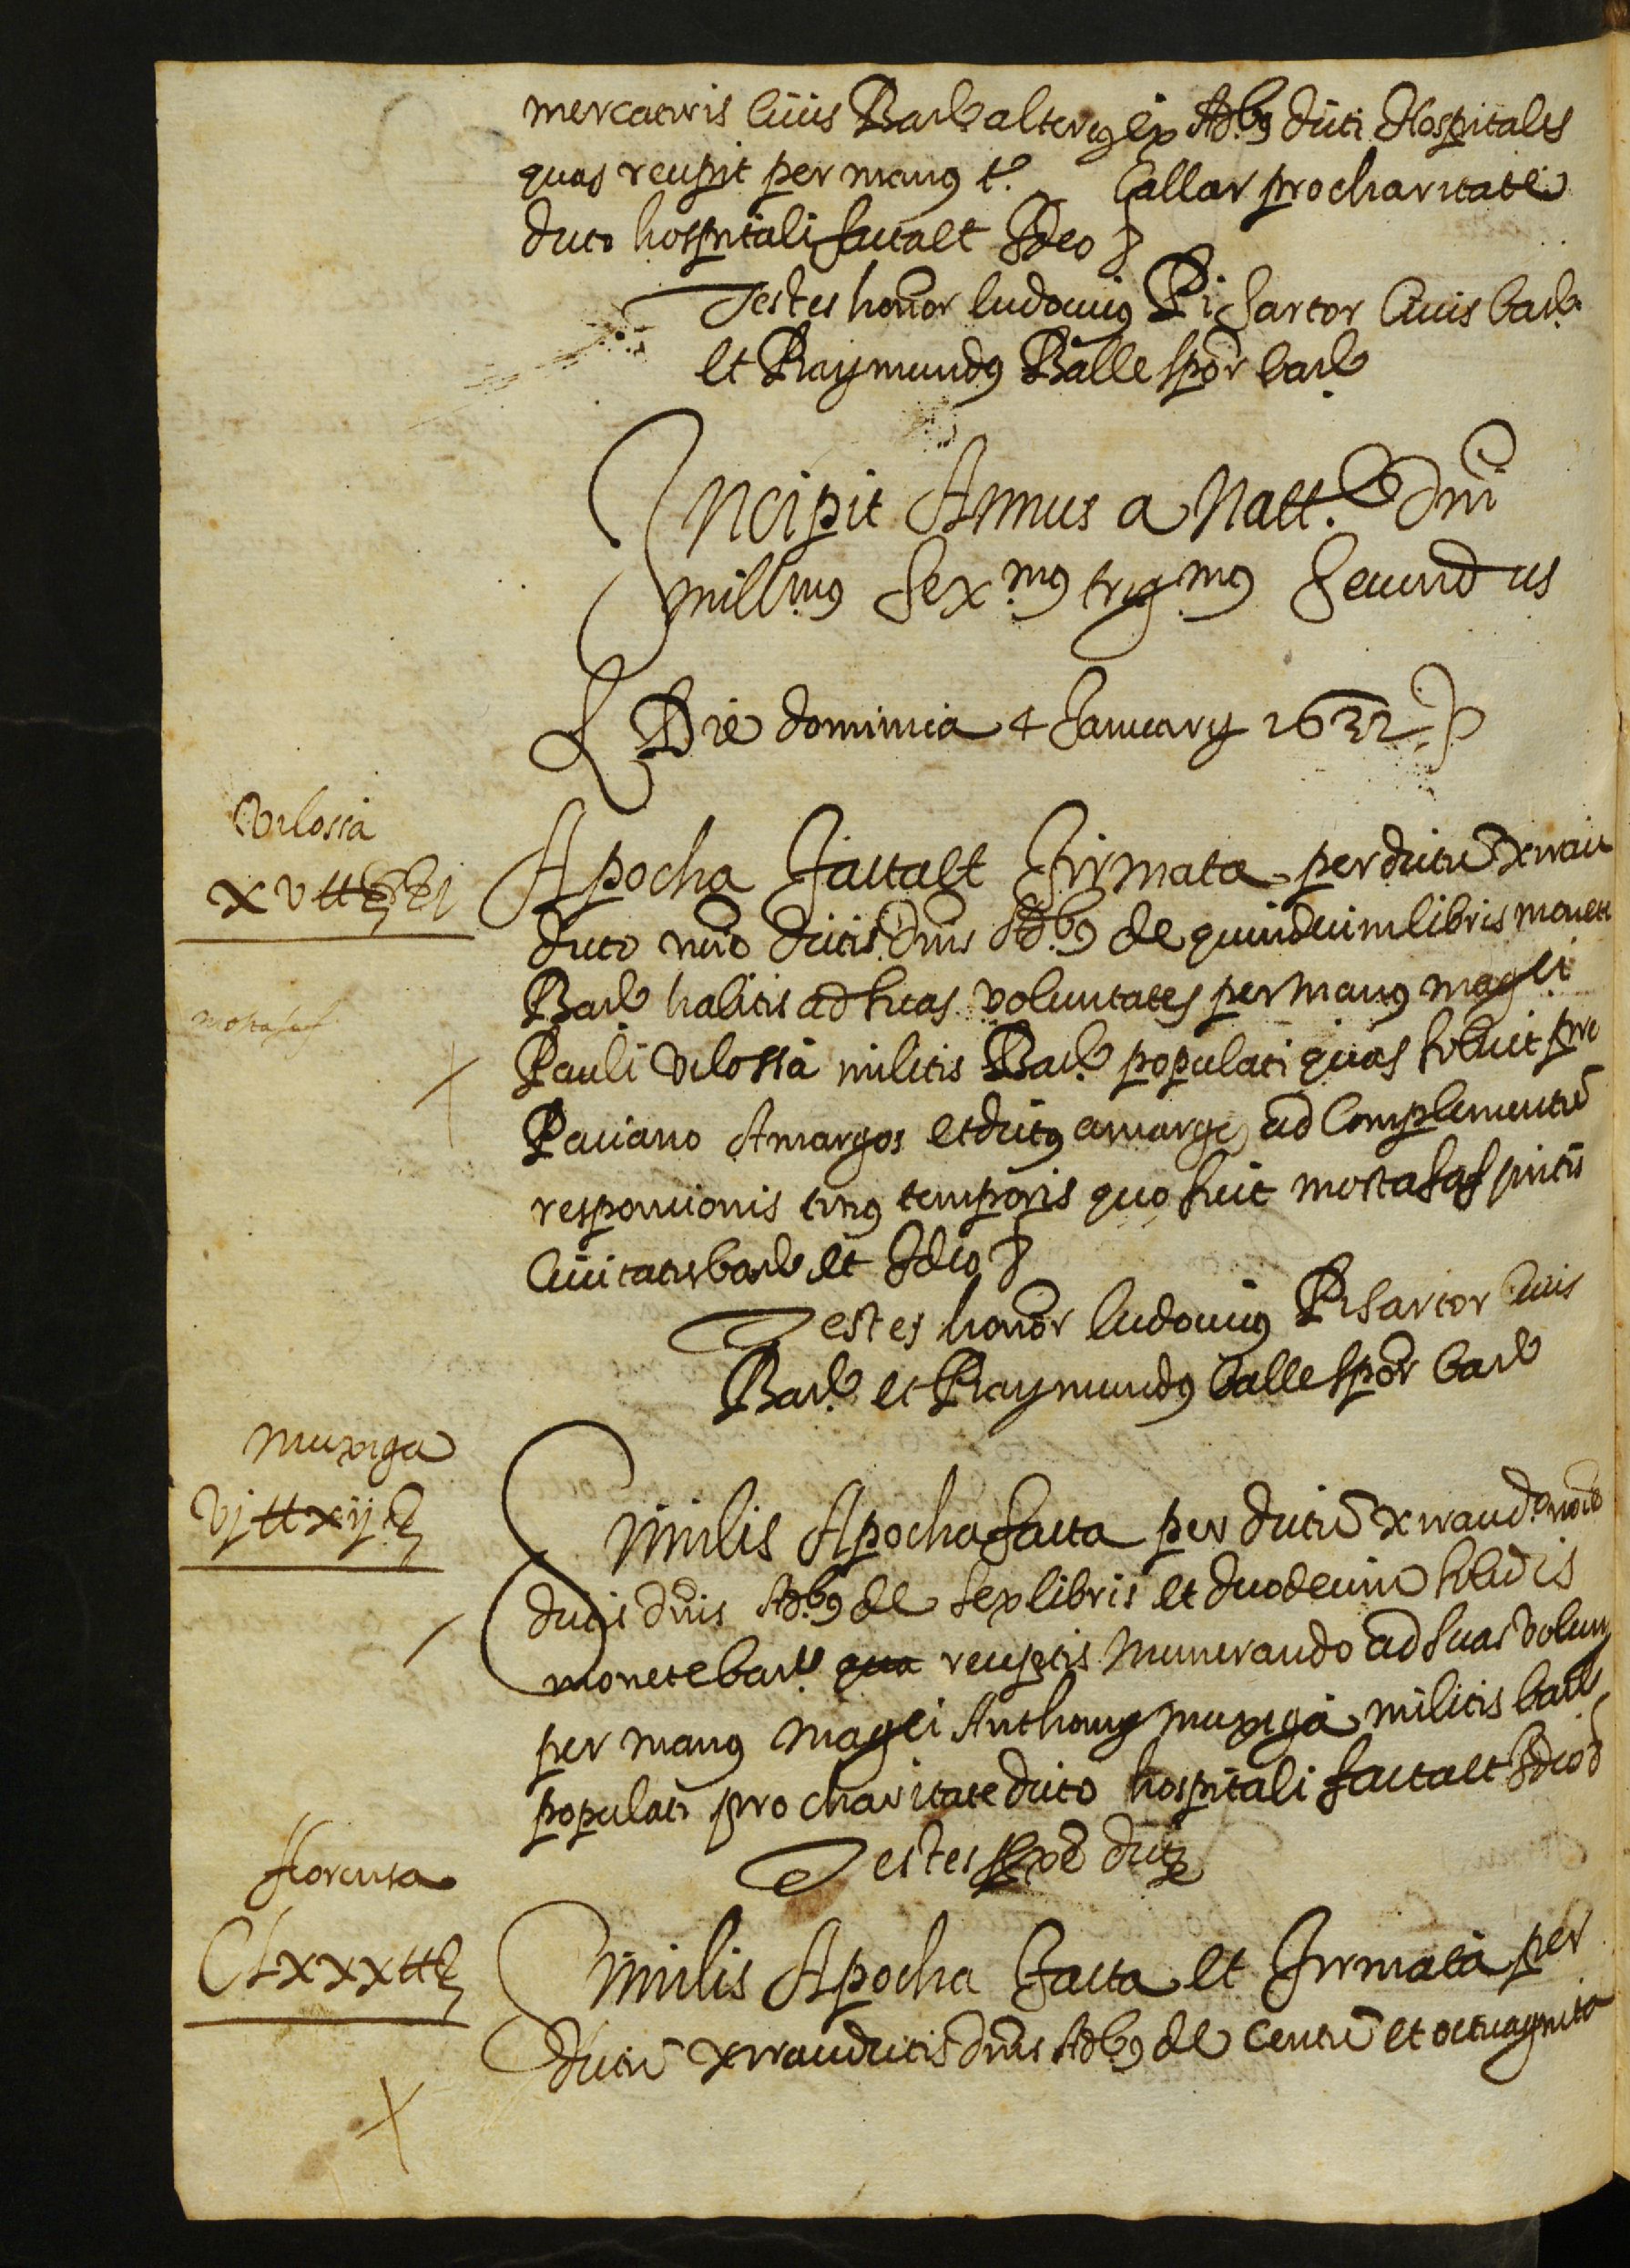 mercatoris Civis Barñe alterius ex Adᵇ⁹ dicti Hospitalis
quas recepit per manus t. Callar pro charitate
dicto hospitali facta et Ideo &
Testes honor ludovicus Pi Sartor Civis barñe
et Raymundus Balle spõr barñe
Incipit Annus a Natt.e Dni
Mill.mus Sex.mus trig.mus Secundus
Die dominica 4 January 1632
Vilossa
xv ll
Apocha facta et firmata per dictū xrrau
dicto noīe dictis Dnis Adᵇ⁹ de quindecim libris monete
Barñe habitis ad suas voluntates per manus magci
mostasaf
Pauli Vilossa militis Barñe populati quas solvit pro
Paciano Amargos et dictus amargos ad Complementū
responcionis eius temporis quo fuit mostasaf pntis
Civitatis barñe et Ideo &
Testes honor ludovicus Pi Sartor Civis
Barñe et Raymundus balle spõr barñe
Muxiga
Vj ll xij ß
Similis Apocha facta per dictū xrraud noīe
dictis dnis Adᵇ⁹ de sex libris et duodecim solidis
monete barñe qua receptis Numerando ad suas volun
per manus Magci Anthony Muxiga militis barñe
populati pro charitate dicto hospitali facta et Ideo &
Testes pxe dicti
florensa
CLxxx ll
Similis Apocha facta et firmata per
Dictū xrrau dictis dnis Adᵇ⁹ de Centū et octuaginta